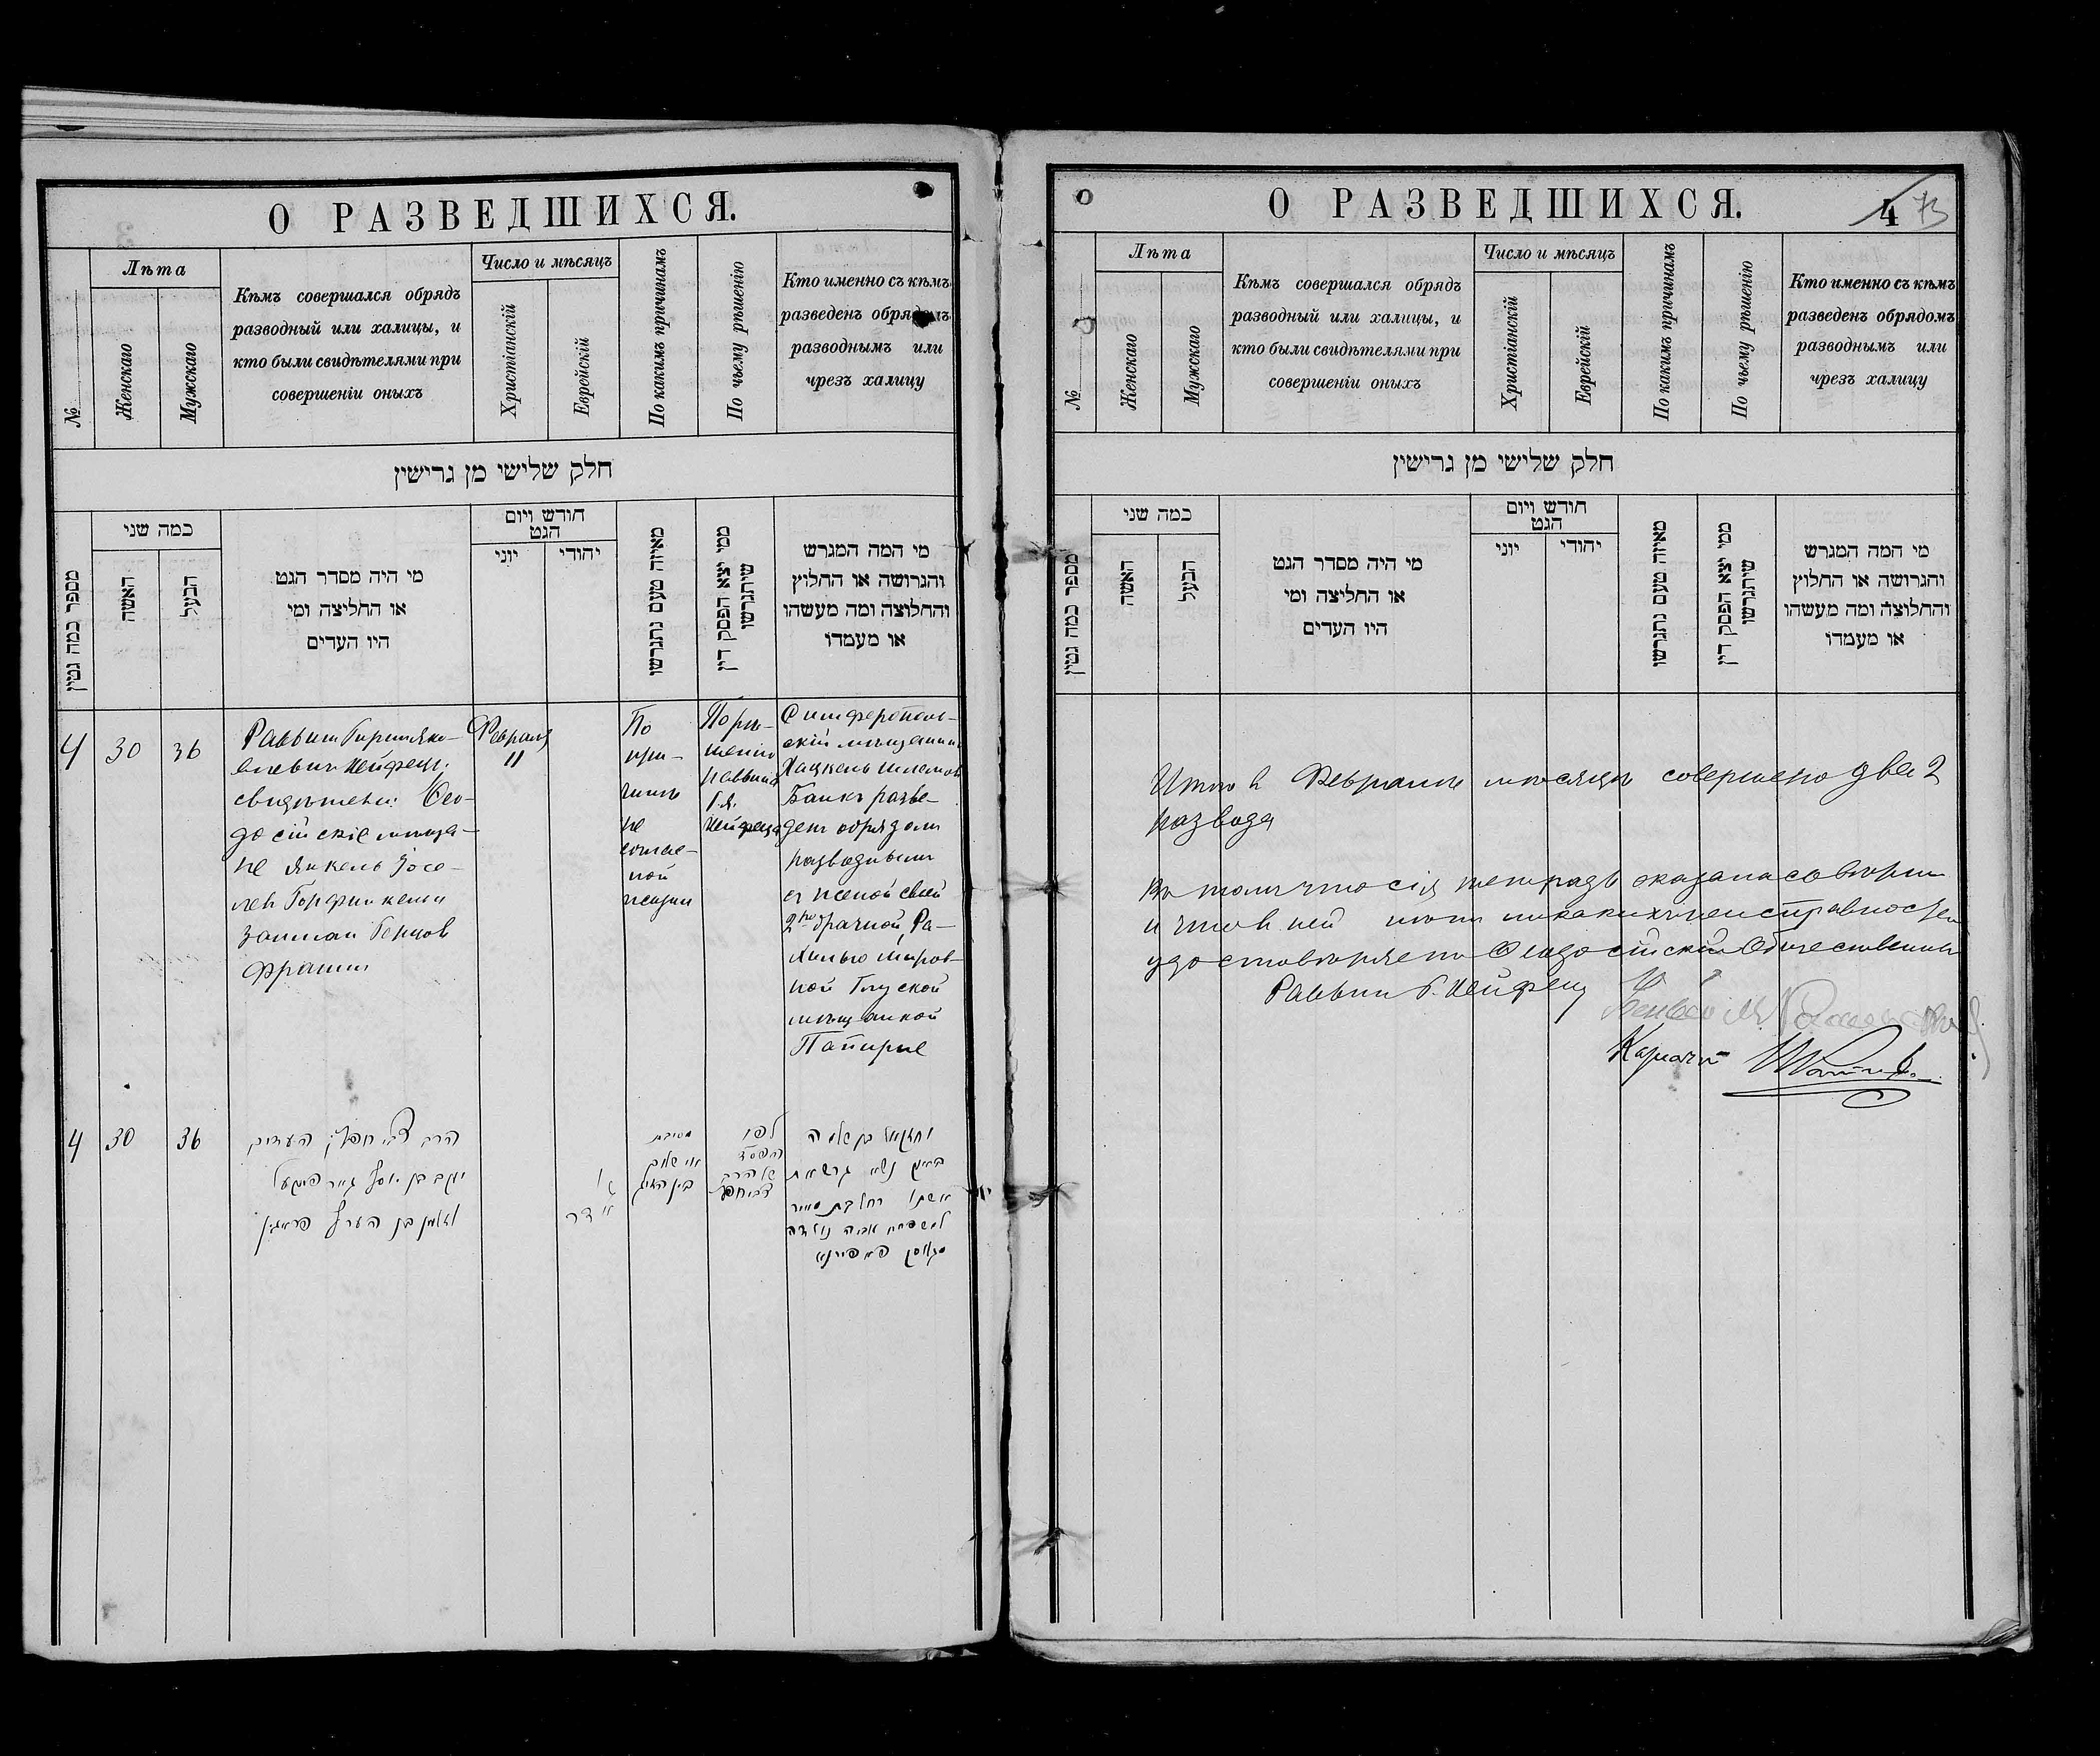 О РАЗВЕДШИХСЯ.
№
Лѣта
Женскаго
Мужскаго
Кѣмъ совершался обрядъ
разводный или халицы, и
кто были свидѣтелями при
совершеніи оныхъ
Число и мѣсяцъ
Христіанскій
Еврейскій
По какимъ причинамъ
По чьему рѣшенію
Кто именно съ кѣмъ
разведенъ обрядомъ
разводнымъ или
чрезъ халицу
חלק שלישי מן גרישין
מספר כמה גטין
כמה שני
האשה
הבעל
מי היה מסדר הגט
או החליצה ומי
היו העדים
חודש ויום
הגט
יוני
יהודי
מאיזה טעם נתגרשו
ממי יצא הפסק דין
שיתגרשו
מי המה המגרש
והגרושה או החלוץ
והחלוצה ומה מעשהו
או מעמדו
4
30
36
Раввин
Хейфецъ.
свидѣтели: Ѳео-
досійскіе мѣща-
не Янкель Іосе-
Залман
Февраля
11
По
при-
чинѣ
не
соглас-
ной
жизни
По рѣ-
шенію
раввина
Г. Я.
Хейфеца
Симферополь-
скій мѣщанинъ
Хацкель Шлемов
Банкъ разве-
денъ обрядомъ
разводнымъ
съ женой своей
2но брачной, Ра-
хилью Меров-
ной
мѣщанкой
4
30
36
הרב
יעקב בן יוסף
לפי
יחזקאל בן שלמה
אשתו רחל בת מאיר
О РАЗВЕДШИХСЯ.
4 73
№
Лѣта
Женскаго
Мужскаго
Кѣмъ совершался обрядъ
разводный или халицы, и
кто были свидѣтелями при
совершеніи оныхъ
Число и мѣсяцъ
Христіанскій
Еврейскій
По какимъ причинамъ
По чьему рѣшенію
Кто именно съ кѣмъ
разведенъ обрядомъ
разводнымъ или
чрезъ халицу
חלק שלישי מן גרישין
מספר כמה גטין
כמה שני
האשה
הבעל
מי היה מסדר הגט
או החליצה ומי
היו העדים
חודש ויום
הגט
יוני
יהודי
מאיזה טעם נתגרשו
ממי יצא הפסק דין
שיתגרשו
מי המה המגרש
והגרושה או החלוץ
והחלוצה ומה מעשהו
או מעמדו
Итого в Феврале мѣсяцѣ совершено два 2
развода
В томъ что сія тетрадь оказалась
и что в ней нѣтъ никакихъ неисправностей
удостовѣряетъ Ѳеодосійскій Общественный
Раввин Г. Хейфец